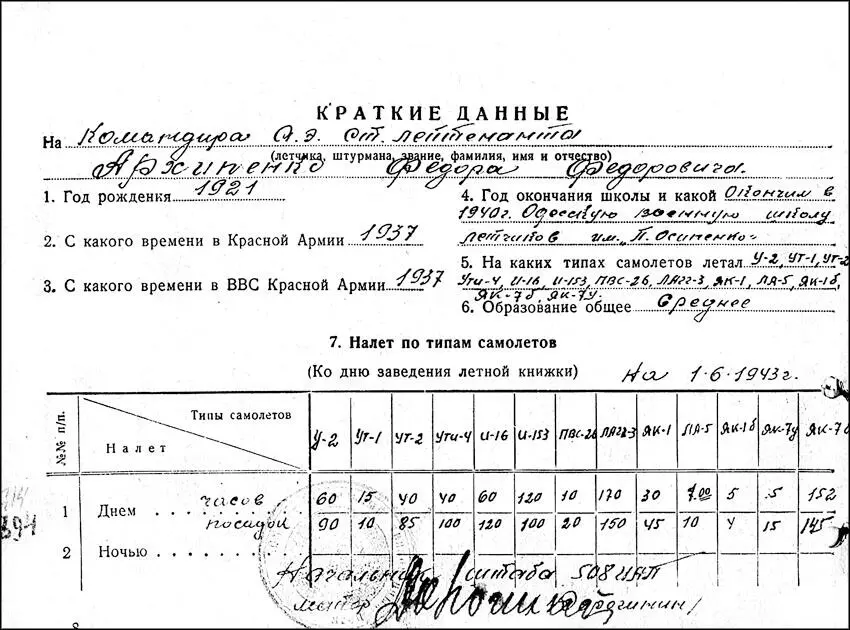 КРАТКИЕ ДАННЫЕ
На Командира А.Э. ст. лейтенанта
(летчика, штурмана, звание, фамилия, имя и отчество)
Архипенко Федора Федоровича.
1. Год рождения 1921
2. С какого времени в Красной Армии 1937
3. С какого времени в ВВС Красной Армии 1937
4. Год окончания школы и какой Окончил в
1940г. Одесскую военную школу
летчиков им. „П. Осипенко“
5. На каких типах самолетов летал У-2, УТ-1, УТ-2
Ути-4, И-16, И-153, ПВС-26, ЛАГГ-3, ЯК-1, ЛА-5, ЯК-1б,
ЯК-7б, ЯК-7у.
6. Образование общее Среднее
7. Налет по типам самолетов
(Ко дню заведения летной книжки) На 1·6·1943г.
№№ п/п. Типы самолетов
Налет
У-2 УТ-1 УТ-2 Ути-4 И-16 И-153 ПВС-26 ЛАГГ-3 ЯК-1 ЛА-5 ЯК-1б ЯК-7у ЯК-7б
1 Днем часов 60 15 40 40 60 120 10 170 30 7.00 5 5 152
посадок 90 10 85 100 120 100 20 150 45 10 4 15 145
2 Ночью
Начальник штаба 508 ИАП
394